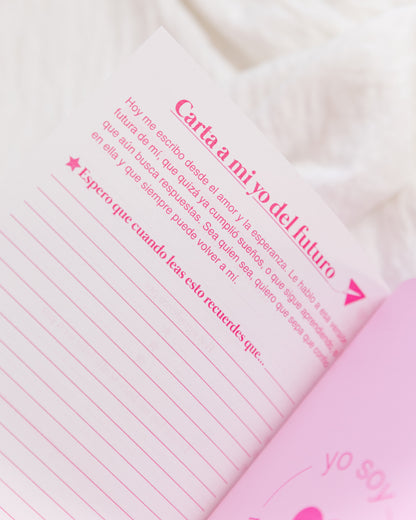 Carta a mi yo del futuro
Hoy me escribo desde el amor y la esperanza. Le hablo a esa
futura de mí, que quizá ya cumplió sueños, o que sigue aprendiendo,
que aún busca respuestas. Sea quien sea, quiero que sepa que
en ella y que siempre puede volver a mí.
Espero que cuando leas esto recuerdes que...
yo soy